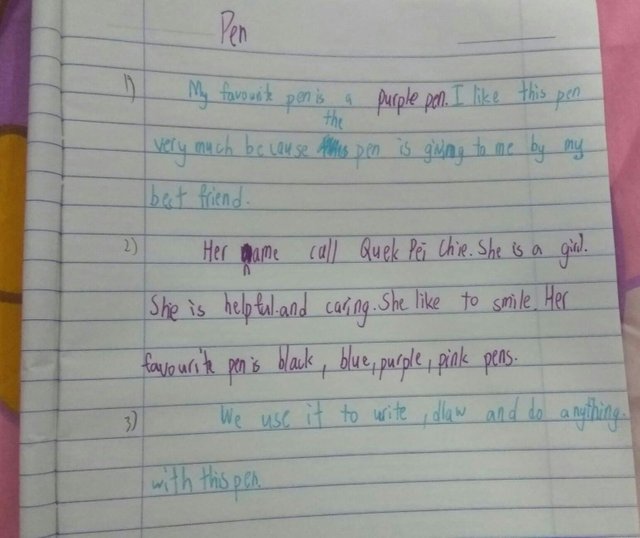 Pen
1) My favourite pen is a purple pen. I like this pen
the
very much because pen is giving to me by my
best friend.
2) Her name call Quek Pei Chie. She is a girl.
She is helpful and caring. She like to smile. Her
favourite pen is black, blue, purple, pink pens.
3) We use it to write, dlaw and do anything.
with this pen.